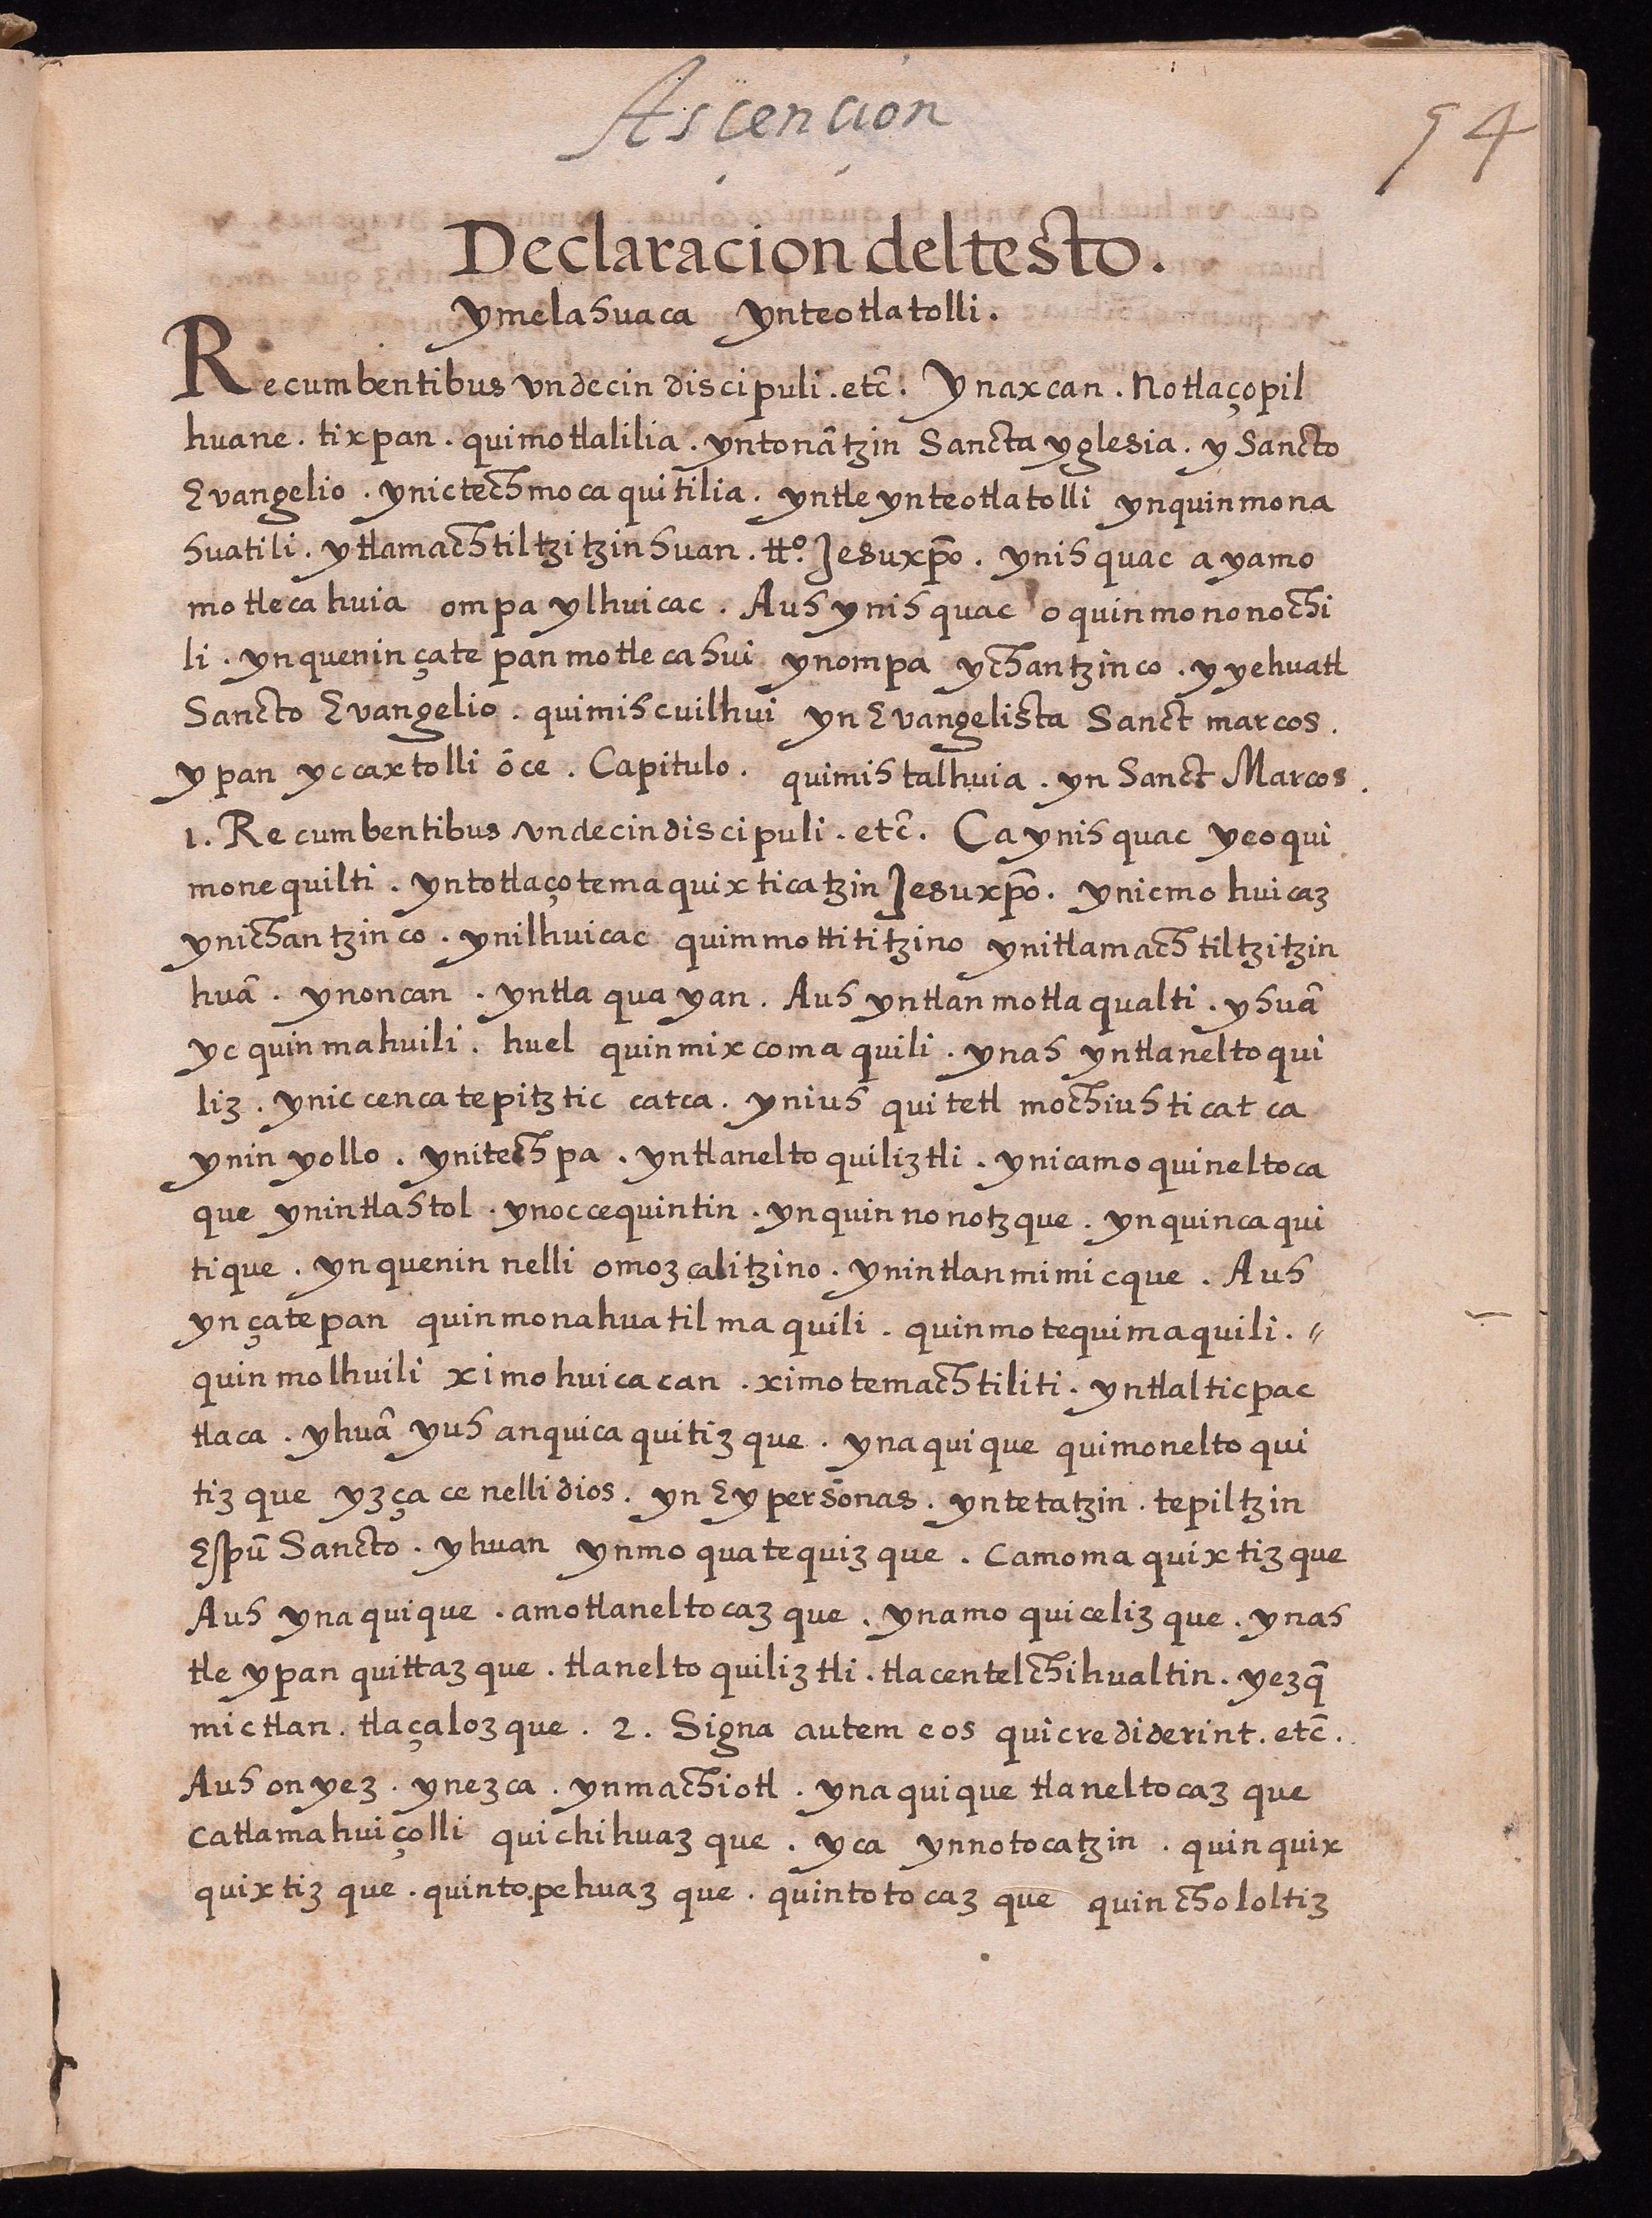 Ascencion
54
Declaracion deltesto.
ymelahuaca ynteotlatolli.
Recumbentibus vndecin discipuli. etc̄. Ynaxcan. Notlaçopil
huane. tixpan. quimotlalilia. yntonātzin Sancta yglesia. y Sancto
Evangelio. ynictechmocaquitilia. yntle ynteotlatolli ynquinmona
huatili. ytlamachtiltzitzinhuan. tt.º Jesuxp̄o. ynihquac ayamo
motlecahuia ompa ylhuicac. Auh ynihquac oquinmononochi
li. ynquenin çatepan motlecahui ynompa ychantzinco. y yehuatl
Sancto Evangelio. quimihcuilhui yn Evangelista Sanct marcos.
ypan yccaxtolli ōce. Capitulo. quimihtalhuia. yn Sanct Marcos.
1. Recumbentibus vndecin discipuli. etc̄. Ca ynihquac yeoqui
monequilti. yntotlaçotemaquixticatzin Jesuxp̄o. ynicmohuicaz
ynichantzinco. ynilhuicac quimmottititzino ynitlamachtiltzitzin
huā. ynoncan. yntlaquayan. Auh yntlanmotlaqualti. yhuā
yc quinmahuili. huel quinmixcomaquili. ynah yntlaneltoqui
liz. yniccenca tepitztic catca. yniuh quitetl mochiuhticatca
ynin yollo. ynitechpa. yntlaneltoquiliztli. ynicamo quineltoca
que ynintlahtol. ynoccequintin. ynquinnonotzque. ynquincaqui
tique. ynquenin nelli omozcalitzino. ynintlanmimicque. Auh
ynçatepan quinmonahuatilmaquili. quinmotequimaquili. //
quinmolhuili ximohuicacan. ximotemachtiliti. yntlalticpac
tlaca. yhuā yuh anquicaquitizque. ynaquique quimoneltoqui
tizque yzça ce nelli dios. yn Ey persōnas. yntetatzin. tepiltzin
Espū Sancto. yhuan ynmoquatequizque. camomaquixtizque
Auh ynaquique. amotlaneltocazque. ynamo quicelizque. ynah
tle ypan quittazque. tlaneltoquiliztli. tlacentelchihualtin. yezq̄
mictlan. tlaçalozque. 2. Signa autem eos quicrediderint. etc̄.
Auh onyez. ynezca. ynmachiotl. ynaquique tlaneltocazque
catlamahuiçolli quichihuazque. yca ynnotocatzin. quinquix
quixtizque. quintopehuazque. quintotocazque quinchololtiz